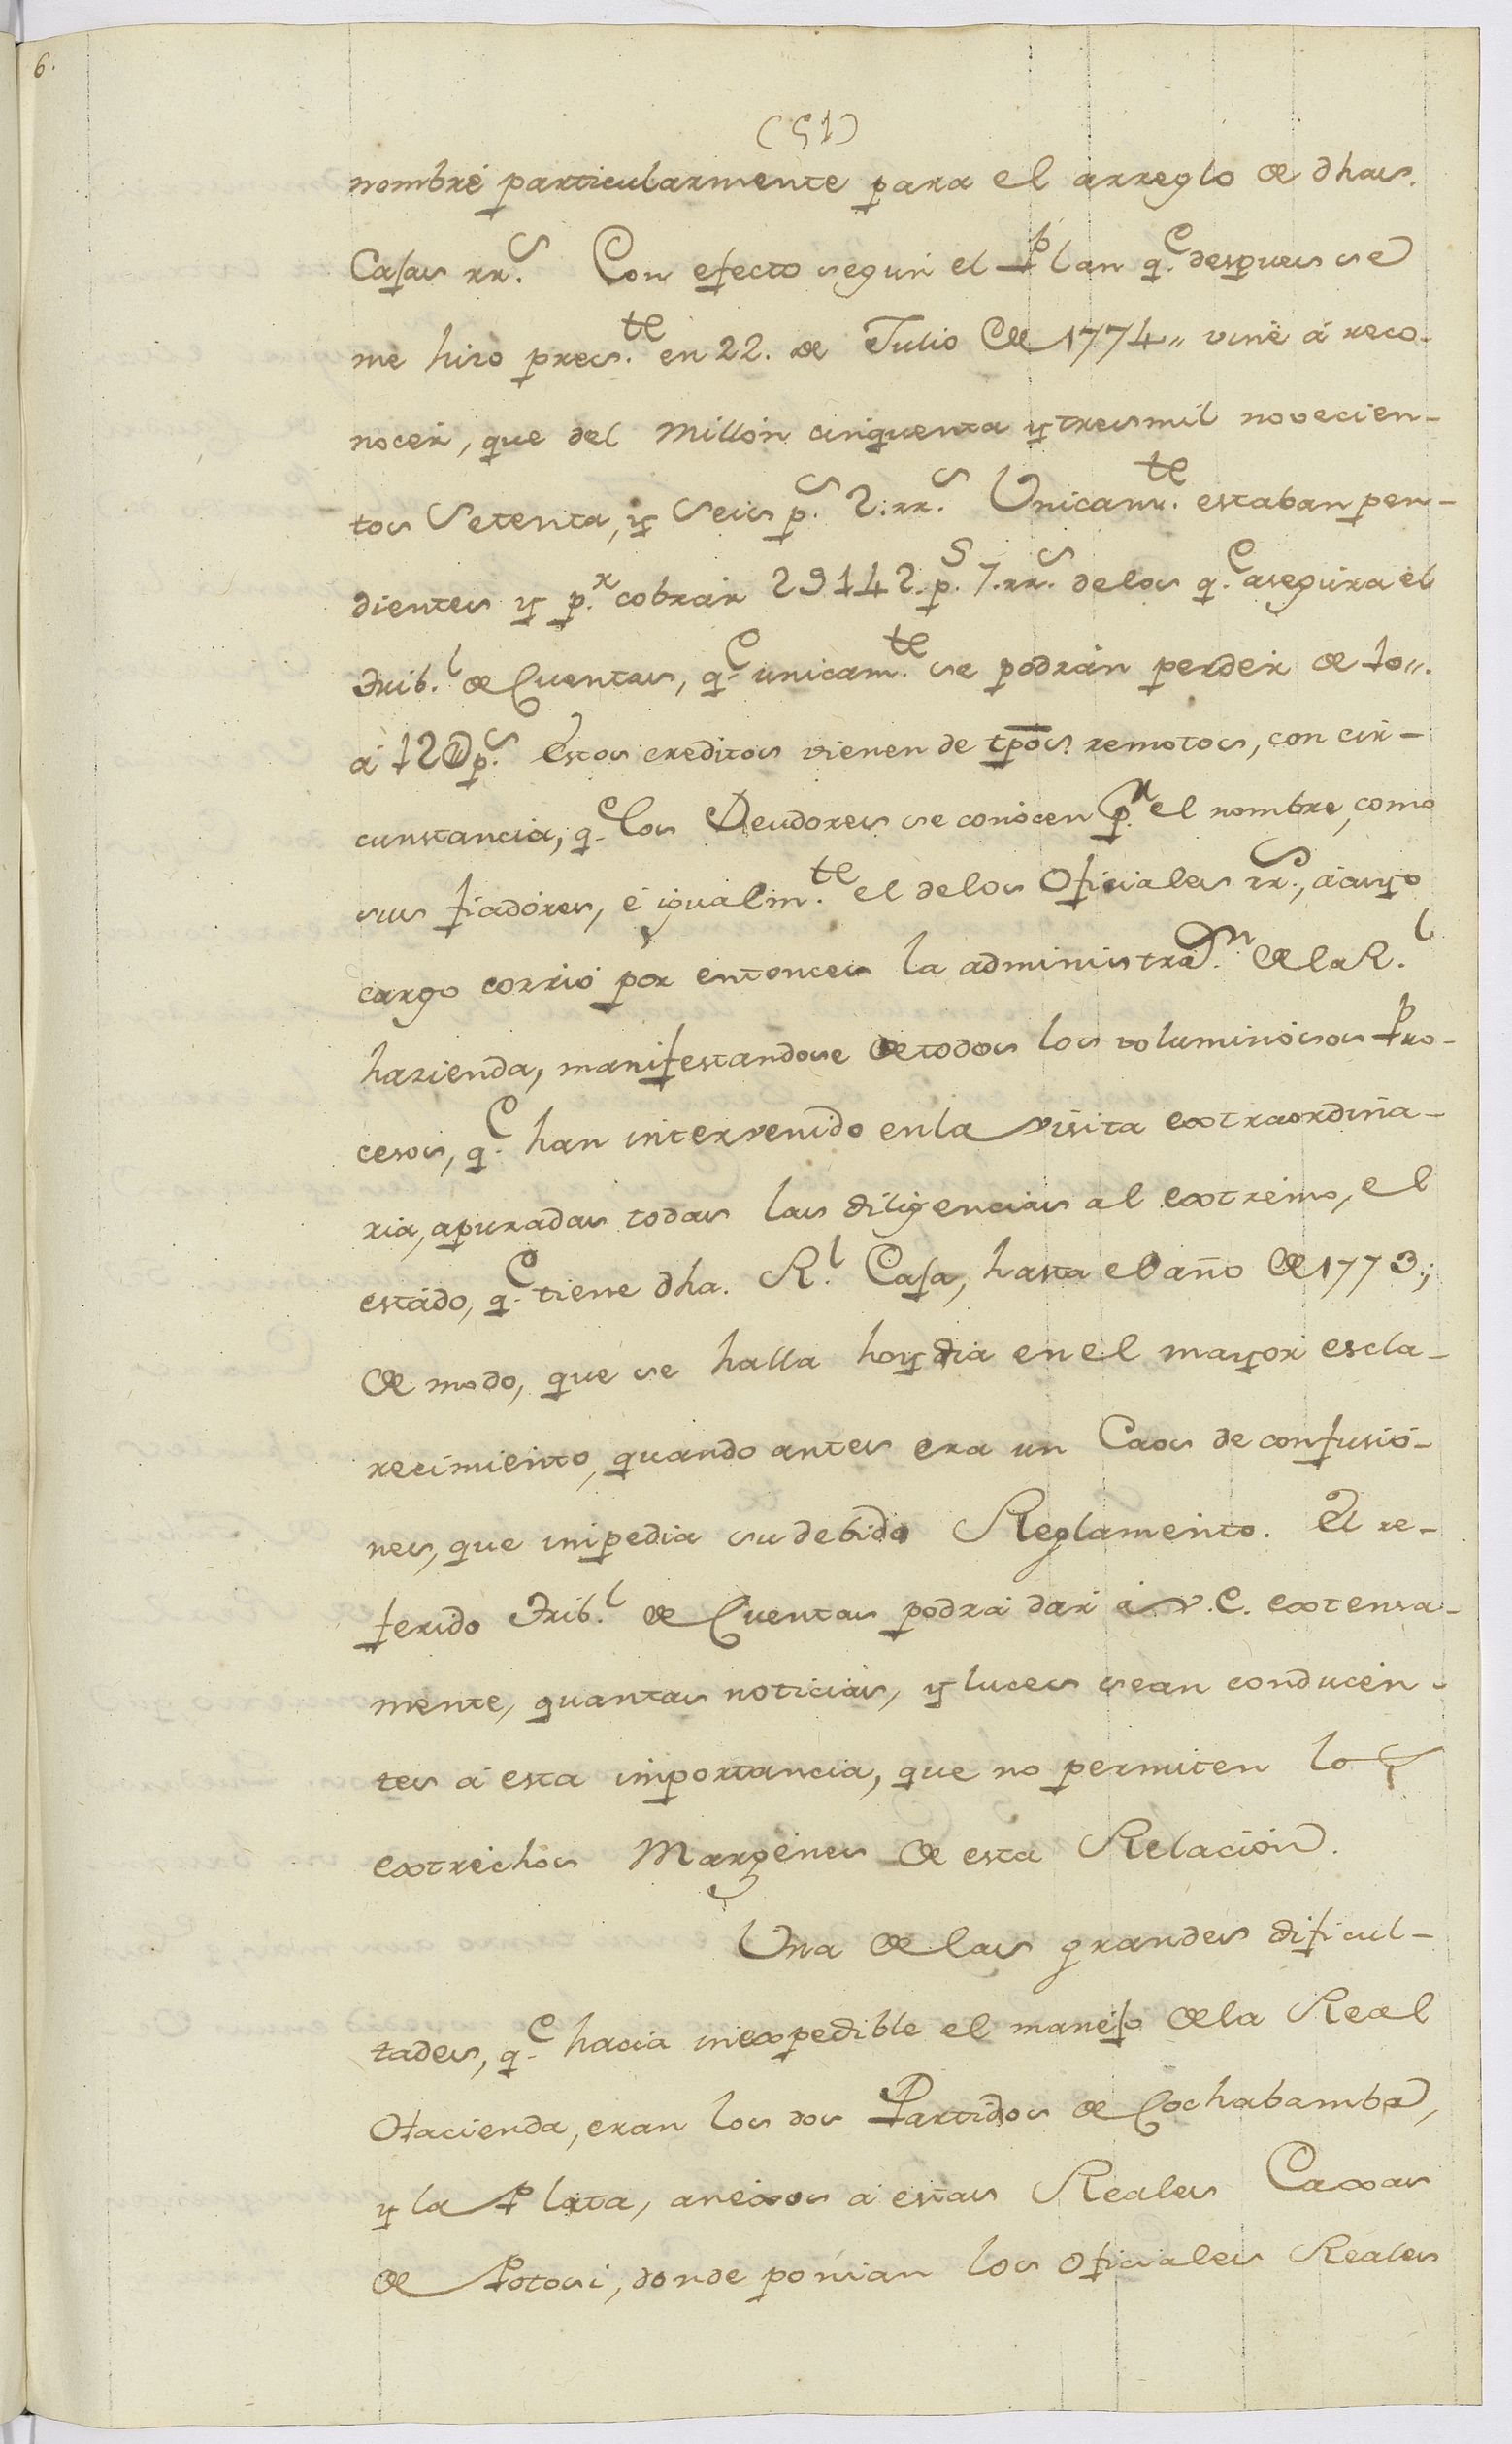 6.
(51)
nombré particularmente para el arreglo de dhas.
Casas rr.s Con efecto segun el Plan q.e despues se
me hizo pres.te en 22. de Julio de 1774,, vine á reco-
nocer, que del Millón cinquenta y tres mil novecien-
tos Setenta, y Seis p.s 2.rr.s Unicam.te estaban pen-
dientes y p.r cobrar 29142.p.s 7.rr.s de los q.e asegura el
Trib.l de Cuentas, q.e unicam.te se podrán perder de 10,,
á 12@p.s Estos creditos vienen de tpõs. remotos, con cir-
cunstancia, q.e los Deudores se conocen p.r el nombre, como
sus fiadores, é igualm.te el de los Oficiales rr.s, á cuyo
cargo corrió por entonces la administra.n de la R.l
hazienda, manifestandose de todos los voluminosos Pro-
cesos, q.e han intervenido en la visita extraordina-
ria, apuradas todas las diligencias al extremo, el
estado, q.e tiene dha. R.l Casa, hasta el año de 1773;
de modo, que se halla hoy dia en el mayor escla-
recimiento, quando antes era un Caos de confusio-
nes, que impedia su debido Reglamento. El re-
ferido Trib.l de Cuentas podrá dar á V.E. extensa-
mente, quantas noticias, y luces sean conducen-
tes á esta importancia, que no permiten los
extrechos Margenes de esta Relación.
Una de las grandes dificul-
tades, q.e hacia inexpedible el manejo de la Real
Hacienda, eran los dos Partidos de Cochabamba,
y la Plata, anexos á estas Reales Caxas
de Potosi, donde ponian los Oficiales Reales